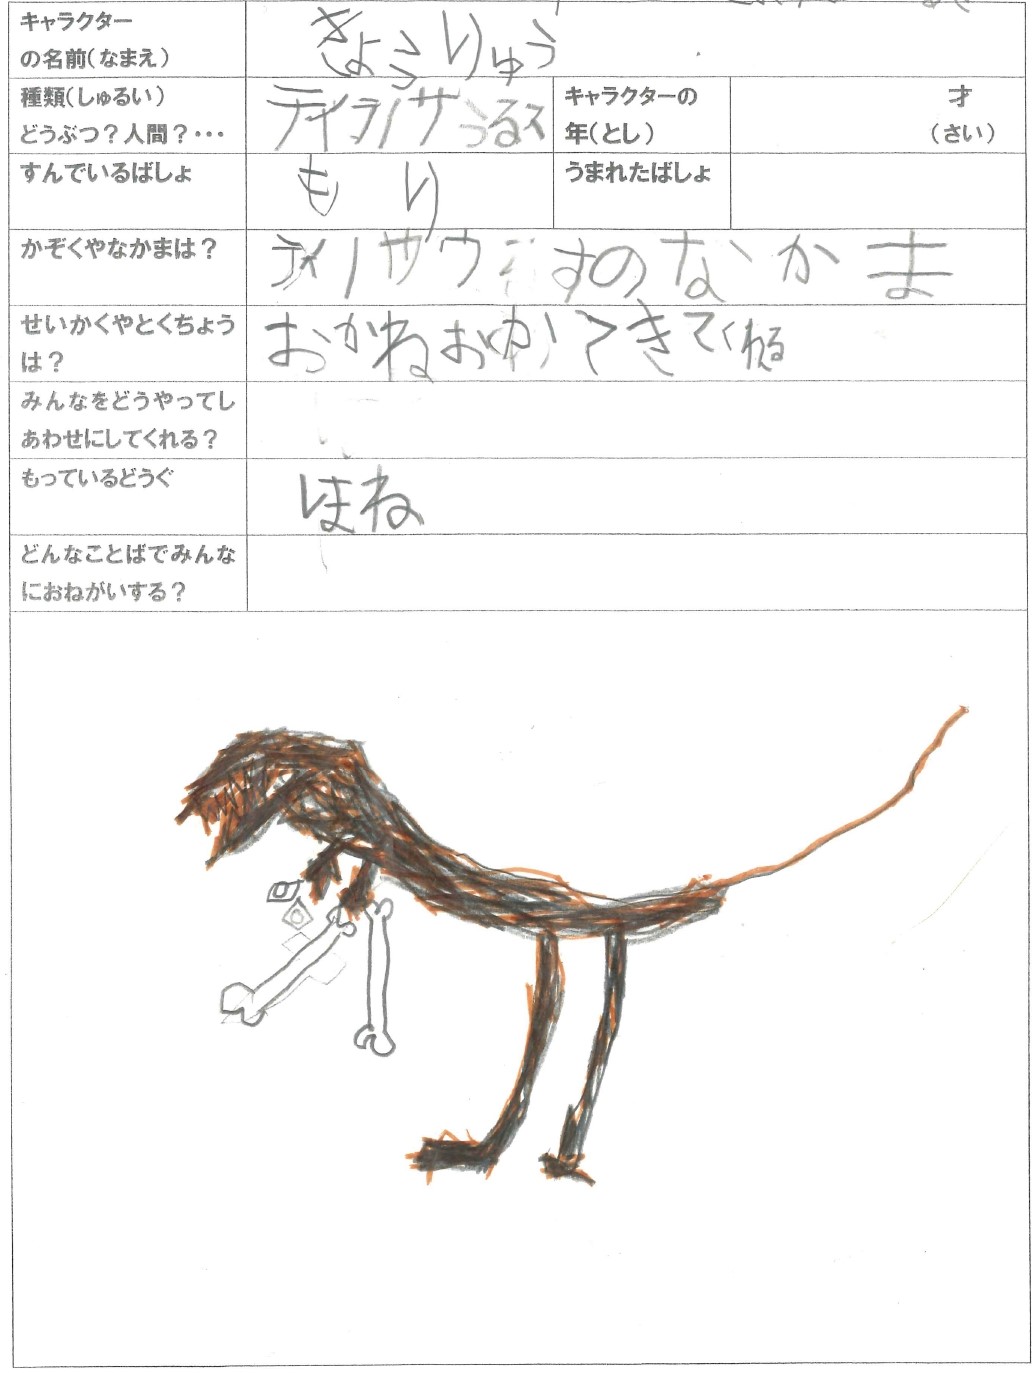 キャラクター
の名前(なまえ)
きょうりゅう
種類(しゅるい)
どうぶつ？人間？・・・
ティラノサうるス
キャラクターの
年(とし)
才
(さい)
すんでいるばしょ
もり
うまれたばしょ
かぞくやなかまは？
すのなかま
せいかくやとくちょう
は？
おかね
てきてくれる
みんなをどうやってし
あわせにしてくれる？
もっているどうぐ
ほね
どんなことばでみんな
におねがいする？